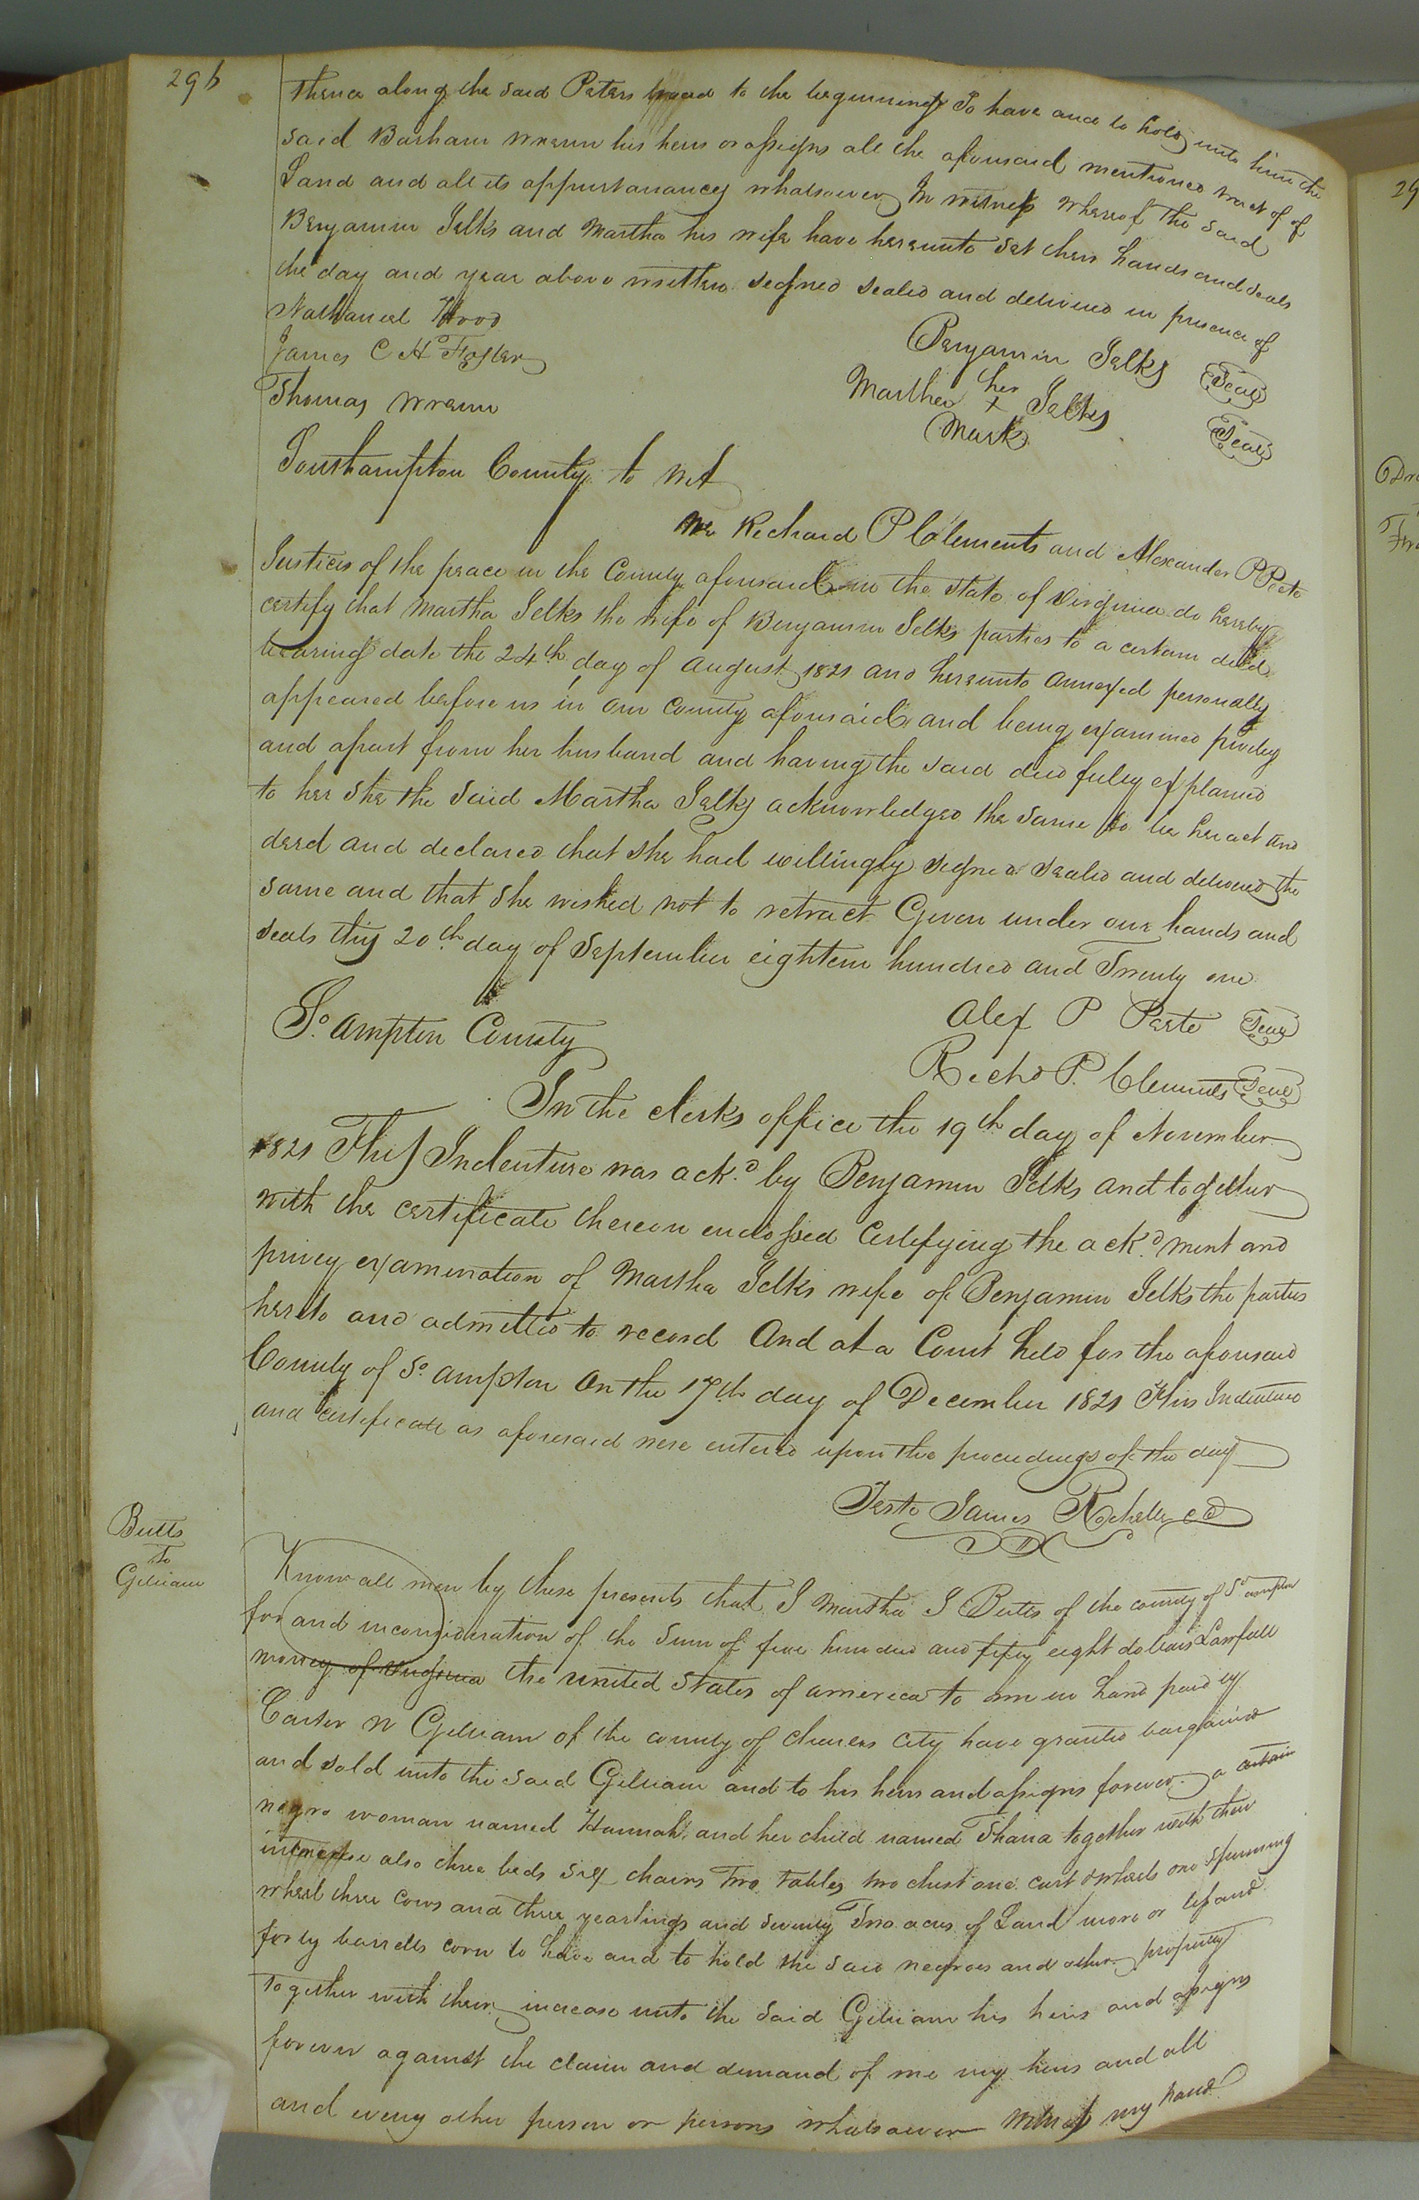 296
thence along the said Peters to the beginning To have and to hold unto him the
said Barham Wrenn his heirs or assigns all the aforesaid mentioned tract of of
Land and all its appurtanances whatsoever In witness whereof the said
Benjamin Jelks and Martha his wife have hereunto set their hands and seals
the day and year above written signed sealed and delivered in presence of
Nathaniel Hood
Benjamin Jelks Seal
James C H Foster
her
Martha x Jelks Seal
Thomas Wrenn
Mark
Southampton County to wit
We Richard P Clements and Alexander P Peete
Justices of the peace in the County aforesaid in the State of Virginia do hereby
certify that Martha Jelks the wife of Benjamin Jelks parties to a certain deed
bearing date the 24th day of August 1821 and hereunto annexed personally
appeared before us in our County aforesaid and being examined privily
and apart from her husband and having the said deed fully explained
to her she the said Martha Jelks acknowledged the same to be her act and
deed and declared that she had willingly signed sealed and delivered the
same and that she wished not to retract Given under our hands and
seals this 20th day of September eighteen hundred and Twenty one
Alex P Peete Seal
So. ampton County
Richd P. Clements Seal
In the clerks office the 19th day of November
1821 This Indenture was ackd by Benjamin Jelks and together
with the certificate thereon endossed Certifying the ackd ment and
privy examination of Martha Jelks wife of Benjamin Jelks the parties
hereto and admitted to record And at a Court held for the aforesaid
County of So. ampton On the 17th day of December 1821 This Indenture
and certificate as aforesaid were entered upon the proceedings of the day
Teste James Rochelle CC
Butts
To
Gilliam
Know all men by these presents that I Martha I Butts of the county of So ampton
for and inconsideration of the sum of five hundred and fifty eight dollars Lawfull
money of Virginia the united States of america to me in hand paid by
Carter W Gilliam of the county of Charles City have granted bargained
and sold unto the said Gilliam and to his heirs and assigns forever a certain
negro woman named Hannah and her child named Thana together with their
increase also three beds six chairs two tables two chest one cart & wheels one spinning
wheel three cows and three yearlings and seventy Two acres of Land more or less and
forty barrells corn to have and to hold the said negroes and other property
together with their increase unto the said Gilliam his heirs and assigns
forever against the claim and demand of me my heirs and all
and every other person or persons whatsoever witness my hand